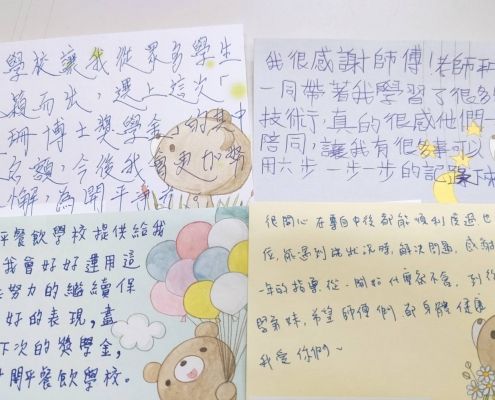 學校讓我從眾多學生
穎而出，遇上這次「
珊博士獎學金」的其中
名額，今後我會更加努
懈，為開平
我很感謝師傅！老師和
一同帶著我學習了很多
技術，真的很感他們一
陪同，讓我有很多事可以
用六步一步一步的記錄下
平餐飲學校提供給我
我會好好運用這
努力的繼續保
好的表現，盡
下次的獎學金，
開平餐飲學校。
很開心在專目中後都能順利度過也
任，能遇到
狀況時，解決問題，感謝
年的指導從一開始什麼都不會，到
學弟妹，希望師傅們都身體健康
我愛你們～